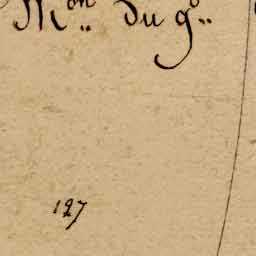 Mon du go
127